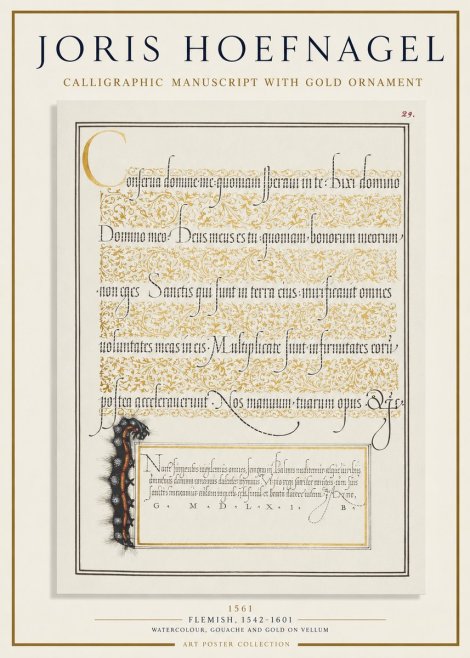 JORIS HOEFNAGEL
CALLIGRAPHIC MANUSCRIPT WITH GOLD ORNAMENT
29.
Conserua domine me quoniam speraui in te · Dixi domino
Domino meo · Deus meus es tu · quoniam · bonorum meorum,
non eges Sanctis qui sunt in terra eius · mirificauit omnes
uoluntates meas in eis · Multiplicate sunt infirmitates eorū
postea accelerauerunt · Nos manuum · tuarum opus
Nocte surgentes uigilemus omnes, semper in Psalmis meditemur atque
G · M · D · L · X · I · B ·
1561
FLEMISH, 1542–1601
WATERCOLOUR, GOUACHE AND GOLD ON VELLUM
ART POSTER COLLECTION